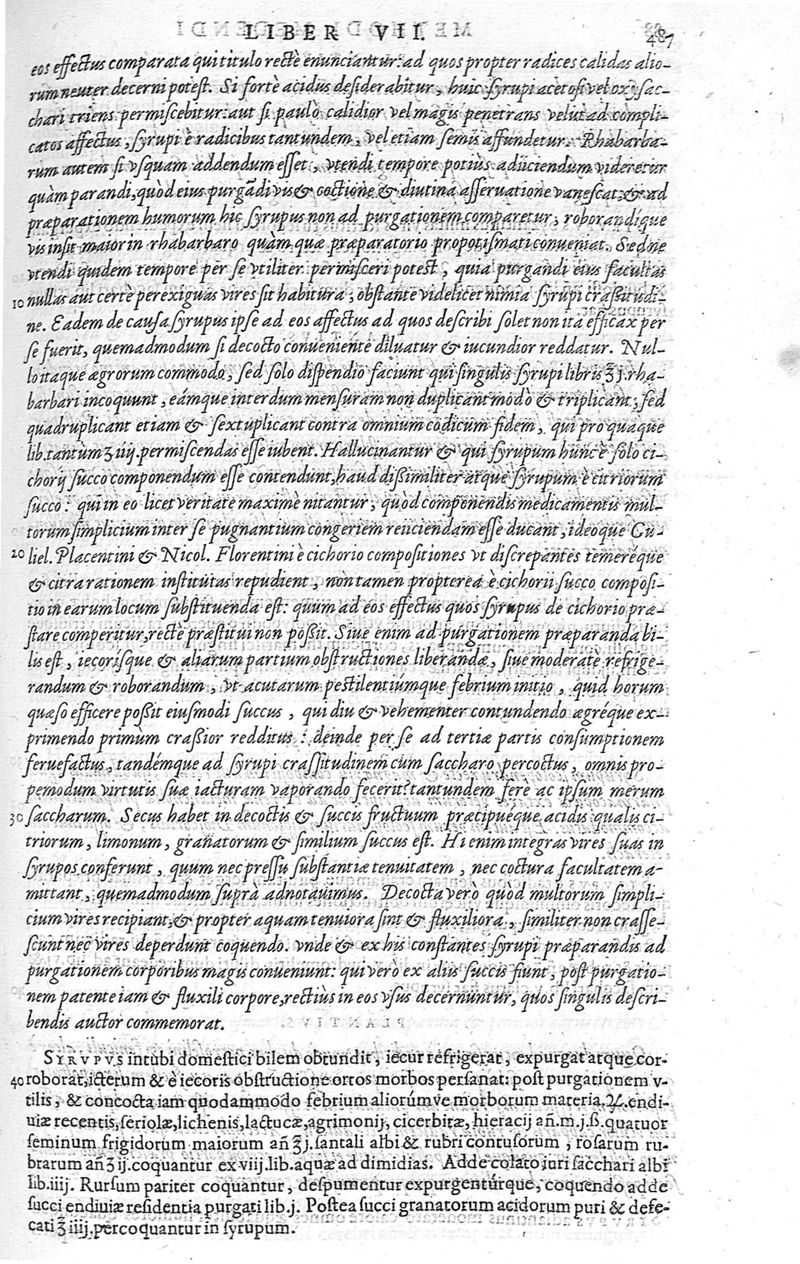 LIBER VII. 487
eos effectus comparata qui titulo rectè enunciantur: ad quos propter radices calidas alio-
rum neuter decerni potest. Si fortè acidus desiderabitur, huic syrupi acetosi vel oxysac-
chari triens permiscebitur: aut si paulò calidior vel magis penetrans velut ad compli-
catos affectus, syrupi è radicibus tantundem, vel etiam semis affundetur. Rhabarba-
rum autem si vsquam addendum esset, vtendi tempore potiùs adiiciendum videretur
quàm parandi, quòd eius purgādi vis & coctione & diutina asseruatione vanescat: & ad
præparationem humorum hic syrupus non ad purgationem comparetur, roborandíque
vis insit maior in rhabarbaro quàm quæ præparatorio propotismati conueniat. Sed ne
vtendi quidem tempore per se vtiliter permisceri potest, quia purgandi eius facultas
10 nullas aut certè perexiguas vires sit habitura, obstante videlicet nimia syrupi crassitudi-
ne. Eadem de causa syrupus ipse ad eos affectus ad quos describi solet non ita efficax per
se fuerit, quemadmodum si decocto conueniente diluatur & iucundior reddatur. Nul-
lo itaque ægrorum commodo, sed solo dispendio faciunt qui singulis syrupi libris ℥j. rha-
barbari incoquunt, eámque interdum mensuram non duplicant modò & triplicant, sed
quadruplicant etiam & sextuplicant contra omnium codicum fidem, qui pro quaque
lib. tantùm ʒ iiij. permiscendas esse iubent. Hallucinantur & qui syrupum hunc è solo ci-
chorij succo componendum esse contendunt, haud dissimiliter atque syrupum è citriorum
succo: qui in eo licet veritate maximè nitantur, quòd componendis medicamentis mul-
torum simplicium inter se pugnantium congeriem reiiciendam esse ducant, ideoque Gu-
20 liel. Placentini & Nicol. Florentini è cichorio compositiones vt discrepantes temeréque
& citra rationem institutas repudient, non tamen propterea è cichorii succo composi-
tio in earum locum substituenda est: quum ad eos effectus quos syrupus de cichorio præ-
stare comperitur, rectè præstitui non possit. Siue enim ad purgationem præparanda bi-
lis est, iecorísque & aliarum partium obstructiones liberandæ, siue moderatè refrige-
randum & roborandum, vt acutarum pestilentiúmque febrium initio, quid horum
quæso efficere possit eiusmodi succus, qui diu & vehementer contundendo ægréque ex-
primendo primum crassior redditus: deinde per se ad tertiæ partis consumptionem
feruefactus, tandémque ad syrupi crassitudinem cum saccharo percoctus, omnis pro-
pemodum virtutis suæ iacturam vaporando fecerit? tantundem ferè ac ipsum merum
30 saccharum. Secus habet in decoctis & succis fructuum præcipuéque acidis qualis ci-
triorum, limonum, granatorum & similium succus est. Hi enim integras vires suas in
syrupos conferunt, quum nec pressu substantiæ tenuitatem, nec coctura facultatem a-
mittant, quemadmodum suprà adnotauimus. Decocta verò quòd multorum simpli-
cium vires recipiant, & propter aquam tenuiora sint & fluxiliora, similiter non crasse-
scunt nec vires deperdunt coquendo. vnde & ex his constantes syrupi præparandis ad
purgationem corporibus magis conueniunt: qui verò ex aliis succis fiunt, post purgatio-
nem patente iam & fluxili corpore, rectiùs in eos vsus decernuntur, quos singulis descri-
bendis auctor commemorat.
SYRVPVS intubi domestici bilem obtundit, iecur refrigerat, expurgat atque cor-
40 roborat, icterum & è iecoris obstructione ortos morbos persanat: post purgationem v-
tilis, & concocta iam quodammodo febrium aliorúmve morborum materia. ℞. endi-
uiæ recentis, seriolæ, lichenis, lactucæ, agrimonij, cicerbitæ, hieracij añ. m. j. ß. quatuor
seminum frigidorum maiorum añ ℥j. santali albi & rubri contusorum, rosarum ru-
brarum añ ʒ ij. coquantur ex viij. lib. aquæ ad dimidias. Adde colato iuri sacchari albi
lib. iiij. Rursum pariter coquantur, despumentur expurgentúrque, coquendo adde
succi endiuiæ residentia purgati lib. j. Postea succi granatorum acidorum puri & defe-
cati ℥ iiij. percoquantur in syrupum.